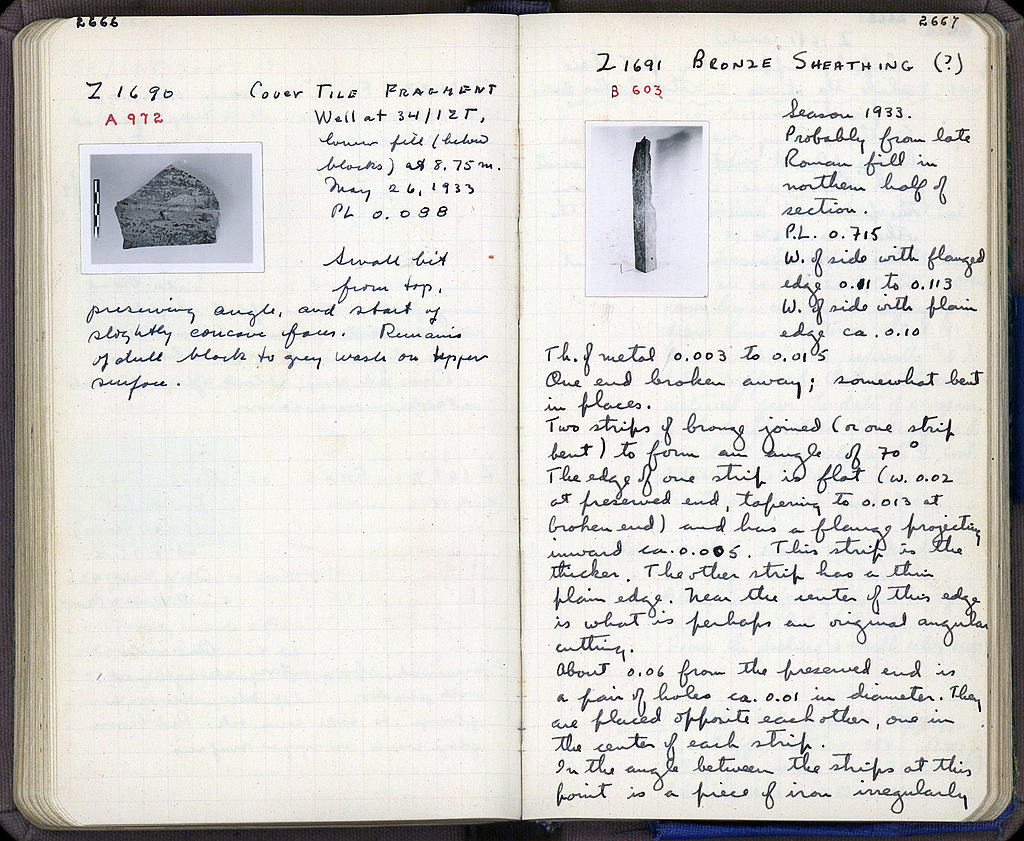 2666
Z 1690 COVER TILE FRAGMENT
A 972
Well at 34/IΣT,
lower fill (below
blocks) at 8.75 m.
May 26, 1933
PL 0.088
Small bit
from top,
preserving angle, and start of
slightly concave faces. Remains
of dull black to grey wash on upper
surface.
2667
Z 1691 BRONZE SHEATHING (?)
B 603
Season 1933.
Probably from late
Roman fill in
northern half of
section.
P.L. 0.715
W. of side with flanged
edge 0.11 to 0.113
W. of side with plain
edge ca. 0.10
Th. of metal 0.003 to 0.015
One end broken away; somewhat bent
in places.
Two strips of bronze joined (or one strip
bent) to form an angle of 70°
The edge of one strip is flat (w. 0.02
at preserved end, tapering to 0.013 at
broken end) and has a flange projecting
inward ca. 0.005. This strip is the
thicker. The other strip has a thin
plain edge. Near the center of this edge
is what is perhaps an original angular
cutting.
About 0.06 from the preserved end is
a pair of holes ca. 0.01 in diameter. They
are placed opposite each other, one in
the center of each strip.
In the angle between the strips at this
point is a piece of iron irregularly